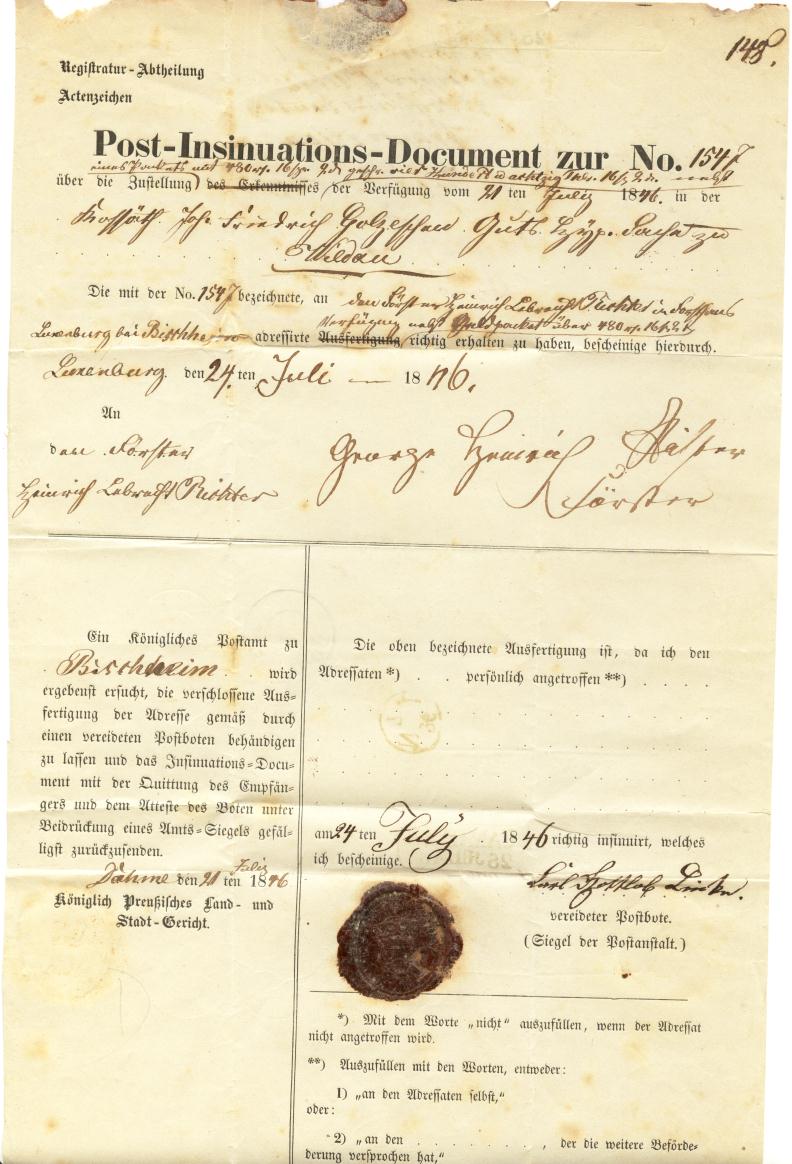 148.
Registratur-Abtheilung
Actenzeichen
Post-Insinuations-Document zur No. 1547
eines Packets mit 480 rt. 16 sgr. 2 d. geschr. vier Hundert achtzig Thlr. 16 sgr. 2 d. nebst
über die Zustellung) des Erkenntnisses (der Verfügung vom 21 ten July 1846. in der
Kossäth Joh. Friedrich Golzeschen Guts Hyp. Sache zu
Wildau
Die mit der No. 1547 bezeichnete, an den Förster Heinrich Lebrecht Richter in
Verfügung nebst Geldpacket über 480 rt. 16 sgr. 2 d.
Luxenburg bei Bischheim adressirte Ausfertigung richtig erhalten zu haben, bescheinige hierdurch.
Luxenburg. den 24. ten Juli 1846.
An
den Förster
Heinrich Lebrecht Richter
George Heinrich Richter
Förster
Ein Königliches Postamt zu
Bischheim wird
ergebenst ersucht, die verschlossene Aus=
fertigung der Adresse gemäß durch
einen vereideten Postboten behändigen
zu lassen und das Insinuations-Docu=
ment mit der Quittung des Empfän=
gers und dem Atteste des Boten unter
Beidrückung eines Amts-Siegels gefäl=
ligst zurückzusenden.
Dahme den 21 ten July 1846
Königlich Preußisches Land- und
Stadt-Gericht.
Die oben bezeichnete Ausfertigung ist, da ich den
Adressaten *) . . persönlich angetroffen **) . . . .
am 24 ten July . 1846 richtig insinuirt, welches
ich bescheinige.
Carl Gottlob Lincke.
vereideter Postbote.
(Siegel der Postanstalt.)
*) Mit dem Worte „nicht“ auszufüllen, wenn der Adressat
nicht angetroffen wird.
**) Auszufüllen mit den Worten, entweder:
1) „an den Adressaten selbst,“
oder:
2) „an den . . . . . . . . . , der die weitere Beförde=
derung versprochen hat,“